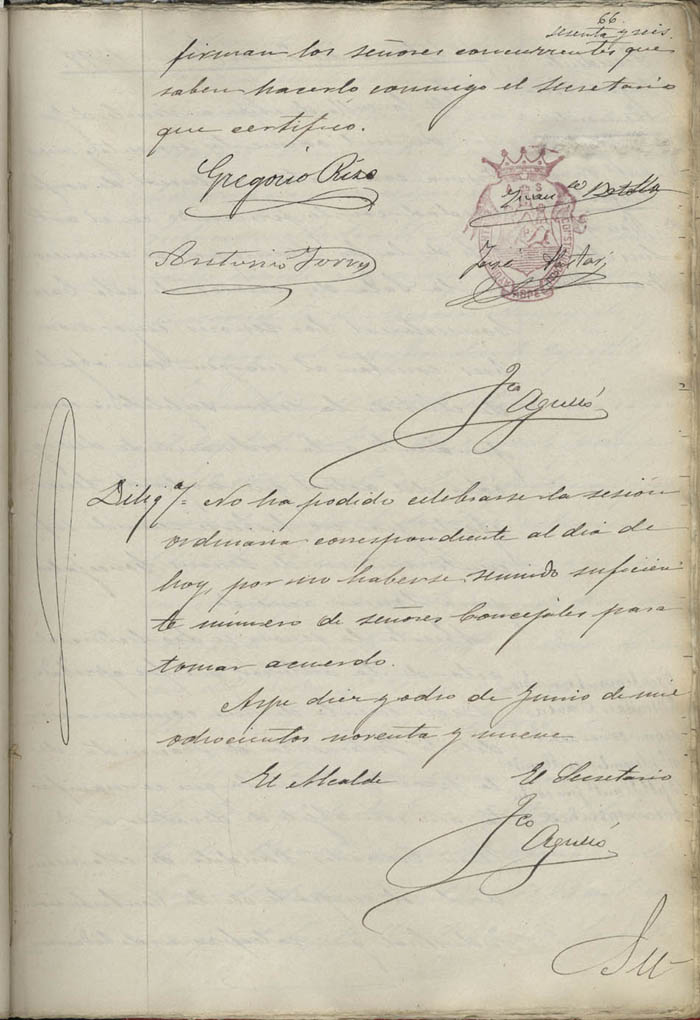 66
sesenta y seis.
firman los señores concurrentes que
saben hacerlo, conmigo el secretario
que certifico.
Gregorio Rizo
Juan Botella
Antonio Torres
José
Fco Agulló
Dilig.ª = No ha podido celebrarse la sesión
ordinaria correspondiente al dia de
hoy, por no haberse reunido suficien
te número de señores Concejales para
tomar acuerdo.
Aspe diez y ocho de Junio de mil
ochocientos noventa y nueve
El Alcalde El Secretario
Fco Agulló